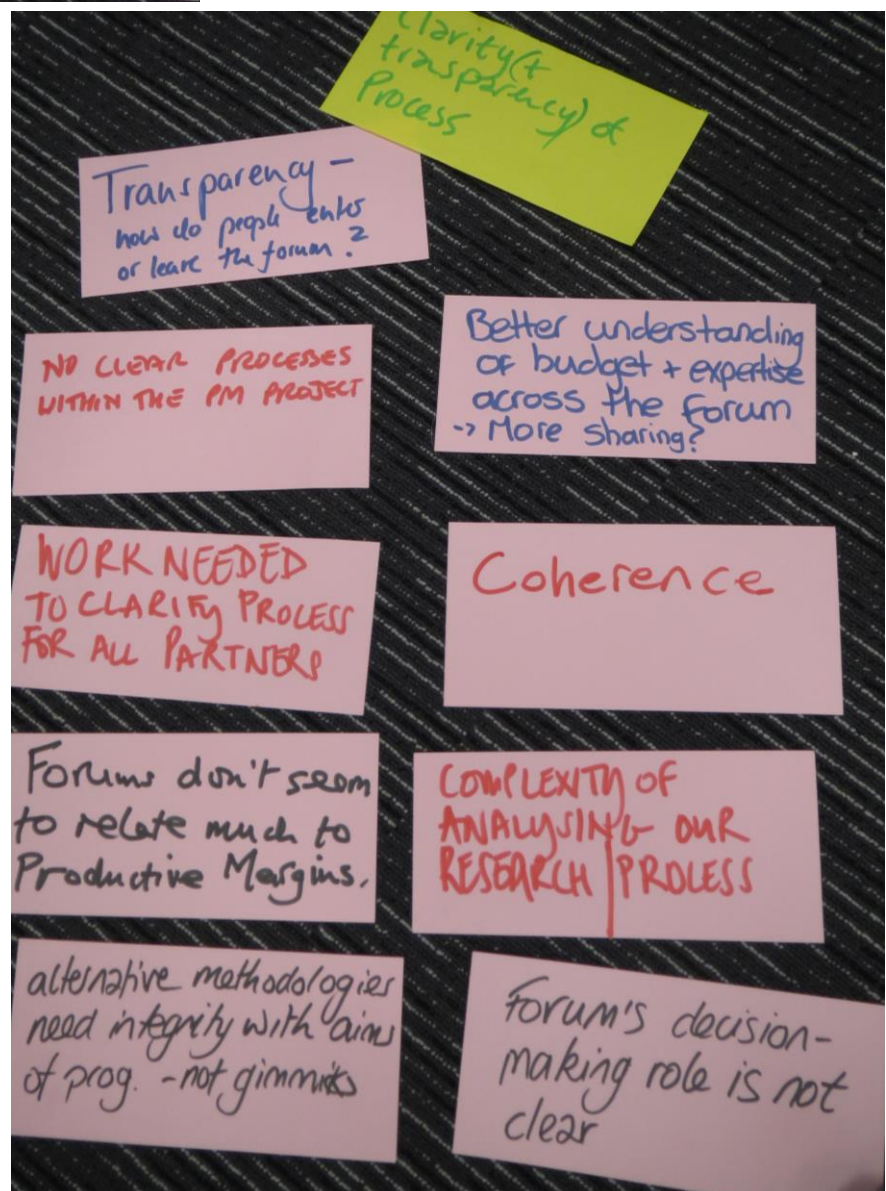 Clarity (+
transparency) of
Process
Transparency -
how do people enter
or leave the forum?
NO CLEAR PROCESSES
WITHIN THE PM PROJECT
Better understanding
of budget + expertise
across the forum
-> More sharing?
WORK NEEDED
TO CLARIFY PROCESS
FOR ALL PARTNERS
Coherence
Forums don't seem
to relate much to
Productive Margins.
COMPLEXITY OF
ANALYSING OUR
RESEARCH | PROCESS
alternative methodologies
need integrity with aims
of prog. - not gimmicks
Forum's decision-
making role is not
clear